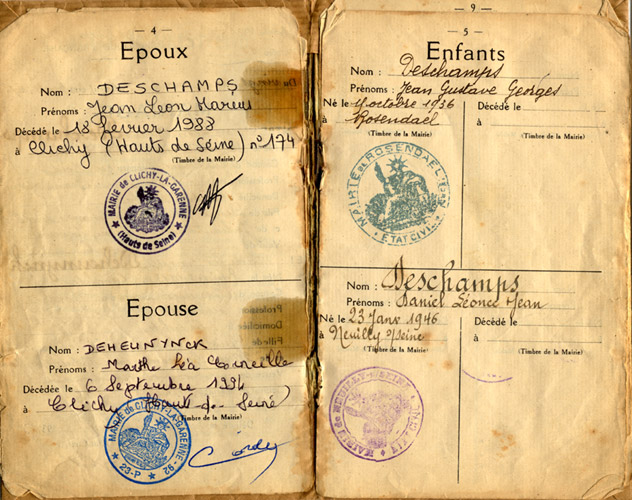 — 4 —
Epoux
Nom : DESCHAMPS
Prénoms : Jean Léon Marius
Décédé le 18 février 1988
à Clichy (Hauts de Seine) n° 174
(Timbre de la Mairie)
MAIRIE de CLICHY-LA-GARENNE
(Hauts de Seine)
Epouse
Nom : DEHEUNYNCK
Prénoms : Marthe Léa Corneille
Décédée le 6 Septembre 1994
à Clichy Hauts-de-Seine
(Timbre de la Mairie)
MAIRIE de CLICHY-LA-GARENNE - 92
23-P
— 9 —
— 5 —
Enfants
Nom : Deschamps
Prénoms : Jean Gustave Georges
Né le 4 octobre 1936
Décédé le
à Rosendael
à
(Timbre de la Mairie)
(Timbre de la Mairie)
MAIRIE de ROSENDAEL
ETAT CIVIL
Nom : Deschamps
Prénoms : Daniel Léonce Jean
Né le 23 Janv 1946
Décédé le
à Neuilly s/Seine
à
(Timbre de la Mairie)
(Timbre de la Mairie)
MAIRIE de NEUILLY-s-SEINE